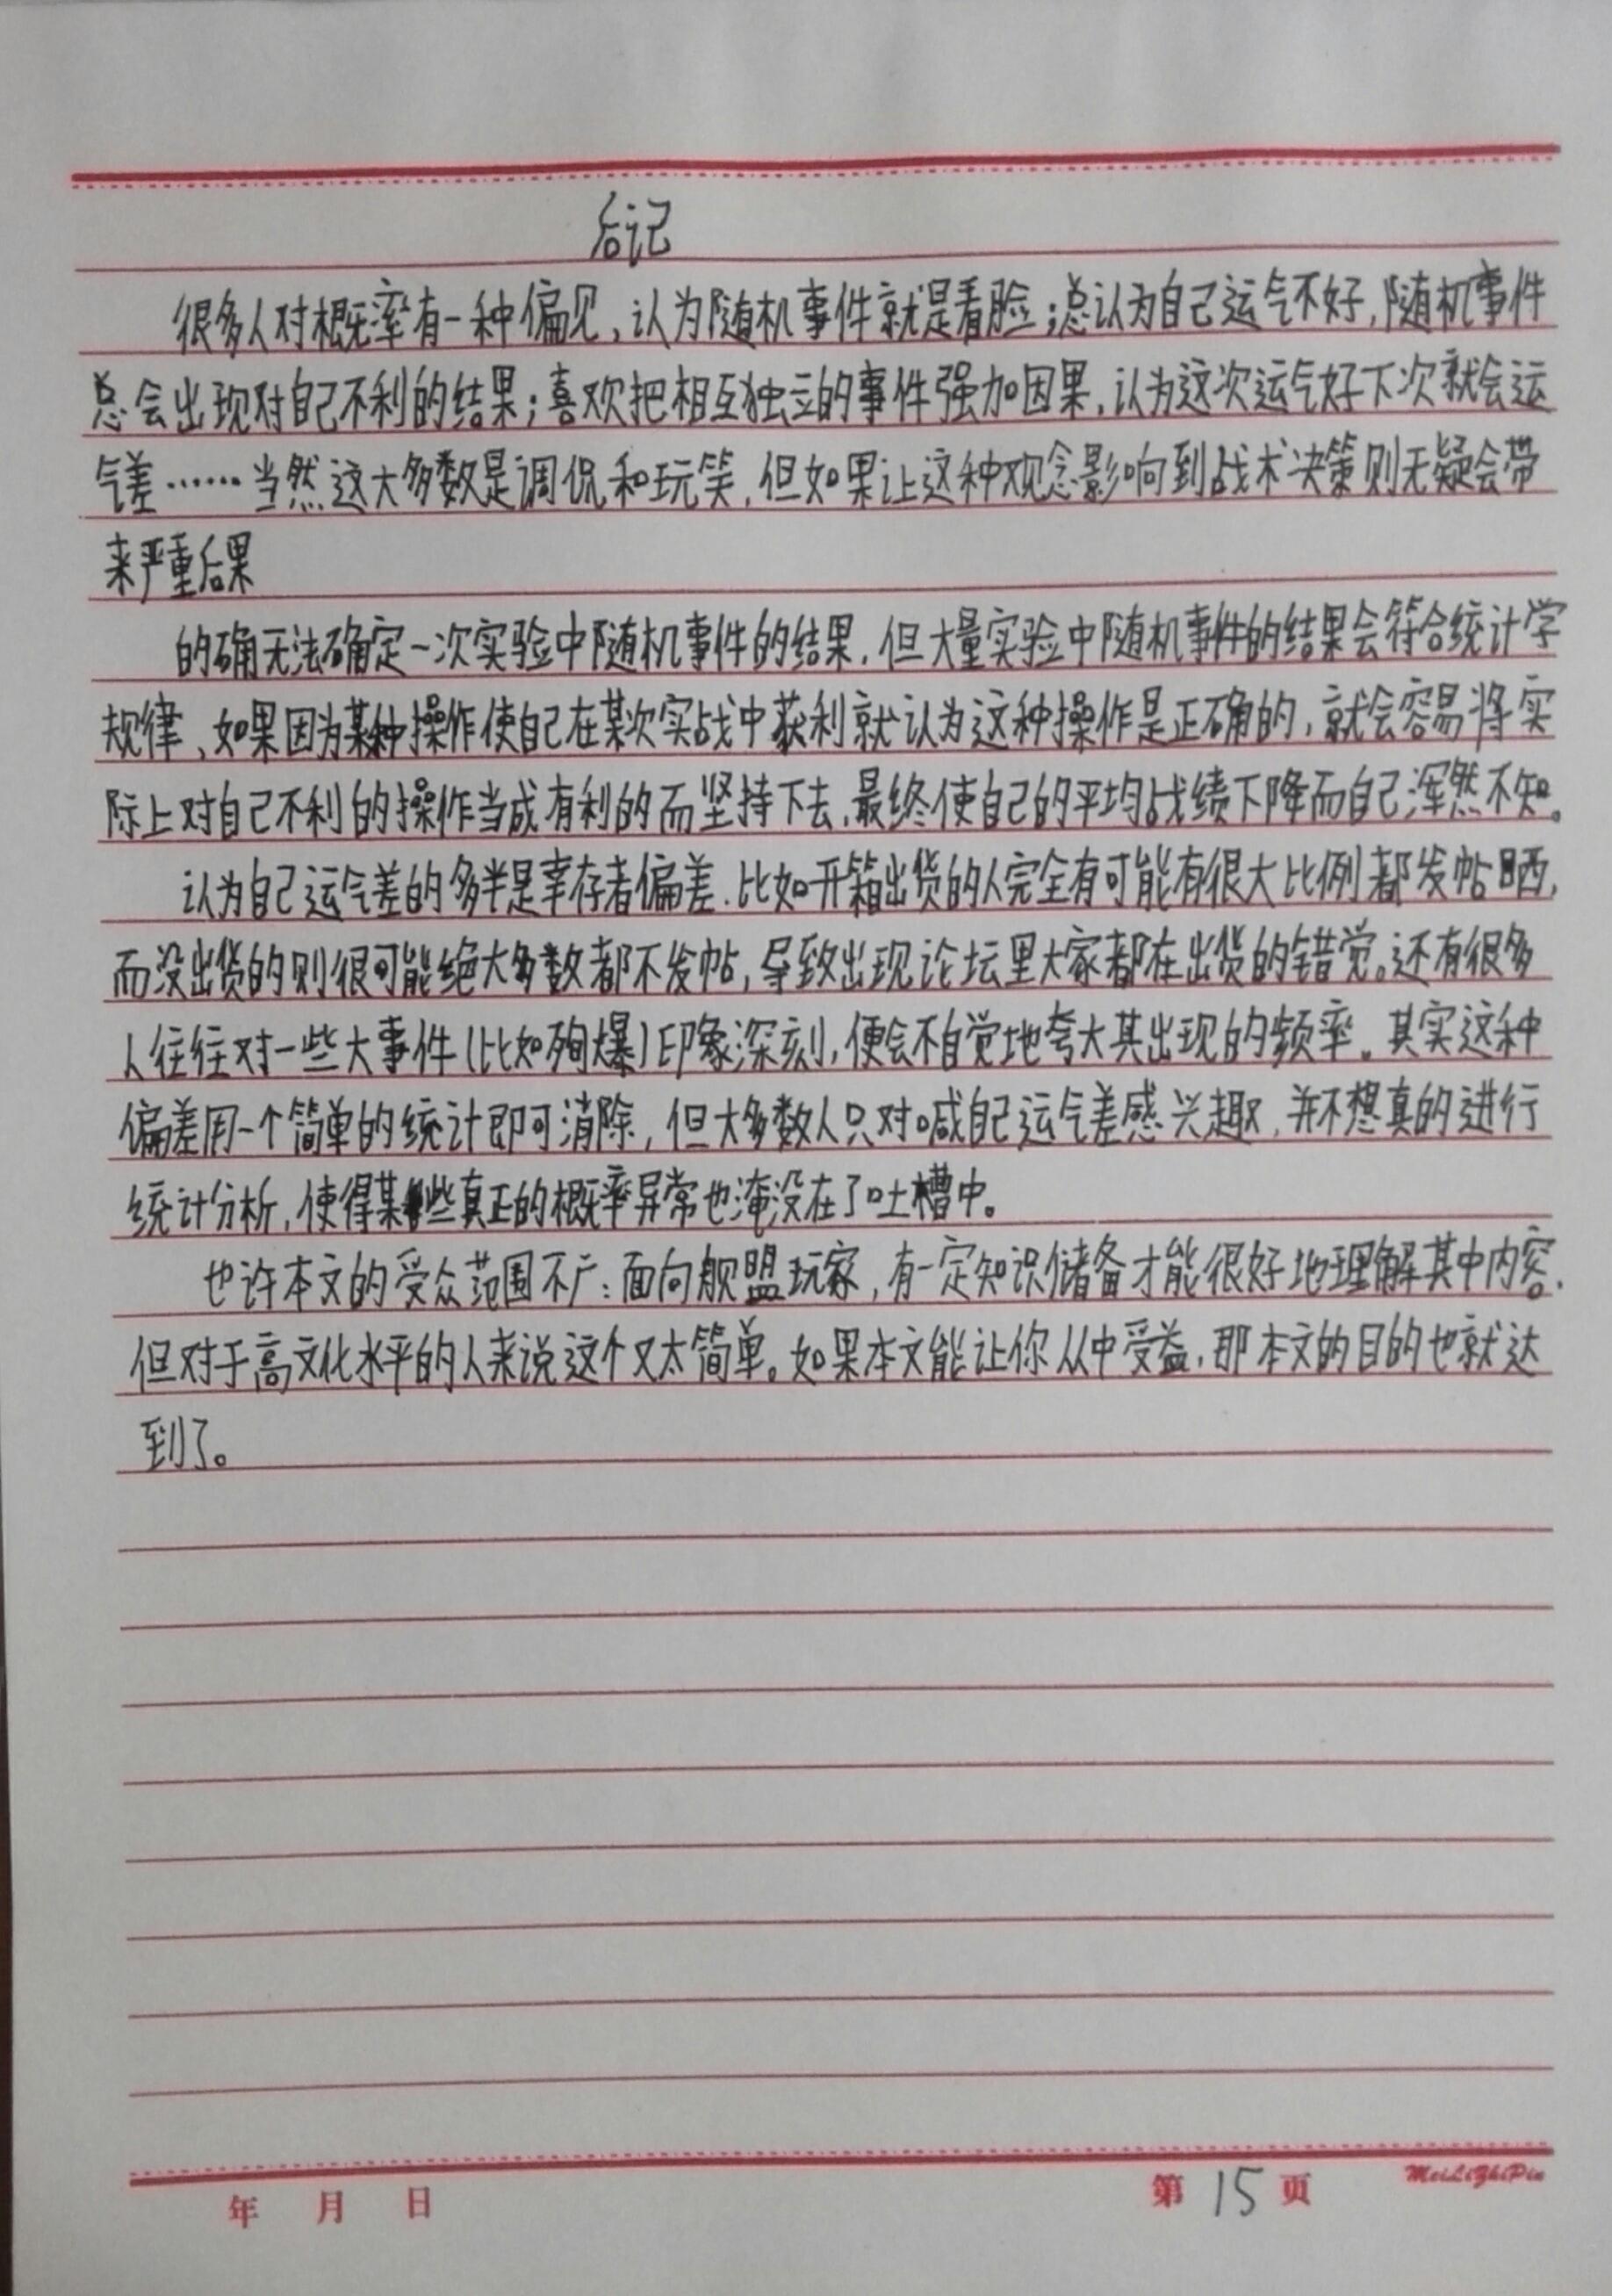 后记
很多人对概率有一种偏见、认为随机事件就是看脸；总认为自己运气不好，随机事件
总会出现对自己不利的结果；喜欢把相互独立的事件强加因果，认为这次运气好下次就会运
气差……当然这大多数是调侃和玩笑，但如果让这种观念影响到战术决策则无疑会带
来严重后果
的确无法确定一次实验中随机事件的结果，但大量实验中随机事件的结果会符合统计学
规律、如果因为某种操作使自己在某次实战中获利就认为这种操作是正确的，就会容易将实
际上对自己不利的操作当成有利的而坚持下去，最终使自己的平均战绩下降而自己浑然不知。
认为自己运气差的多半是幸存者偏差．比如开箱出货的人完全有可能有很大比例都发帖晒，
而没出货的则很可能绝大多数都不发帖，导致出现论坛里大家都在出货的错觉。还有很多
人往往对一些大事件（比如殉爆）印象深刻，便会不自觉地夸大其出现的频率。其实这种
偏差用一个简单的统计即可消除，但大多数人只对喊自己运气差感兴趣，并不想真的进行
统计分析，使得某些真正的概率异常也淹没在了吐槽中。
也许本文的受众范围不广：面向舰盟玩家，有一定知识储备才能很好地理解其中内容．
但对于高文化水平的人来说这个又太简单。如果本文能让你从中受益，那本文的目的也就达
到了。
年 月 日 第15页 MeiLiZhiPin